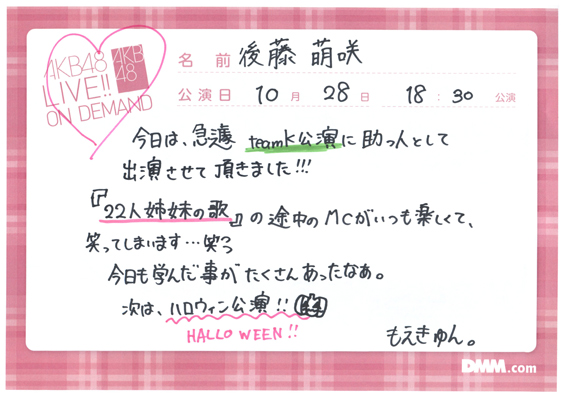 AKB48
LIVE!!
ON DEMAND
AKB
48
名 前 後藤 萌咲
公演日 10 月 28 日 18 : 30 公演
今日は、急遽 teamK公演に助っ人として
出演させて頂きました!!!
『22人姉妹の歌』の途中のMCがいつも楽しくて、
笑ってしまいます…笑う
今日も学んだ事がたくさんあったなぁ。
次は、ハロウィン公演!!
HALLOWEEN!!
もえきゅん。
DMM.com